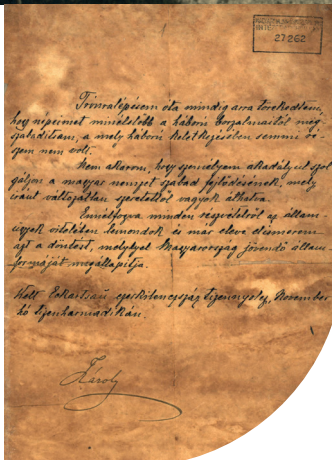 27262
Trónralépésem óta mindig arra törekedtem,
hogy népeimet minélelőbb a háború borzalmaitól meg-
szabadítsam, a mely háború keletkezésében semmi ré-
szem nem volt.
Nem akarom, hogy személyem akadályul szol-
gáljon a magyar nemzet szabad fejlődésének, mely
iránt változatlan szeretettől vagyok áthatva.
Ennélfogva minden részvételről az állam
ügyek vitelében lemondok és már eleve elismerem
azt a döntést, mely Magyarország jövendő állam-
formáját megállapítja.
Kelt Eckartsau, ezerkilencszáz tizennyolc, November
hó tizenharmadikán.
Károly